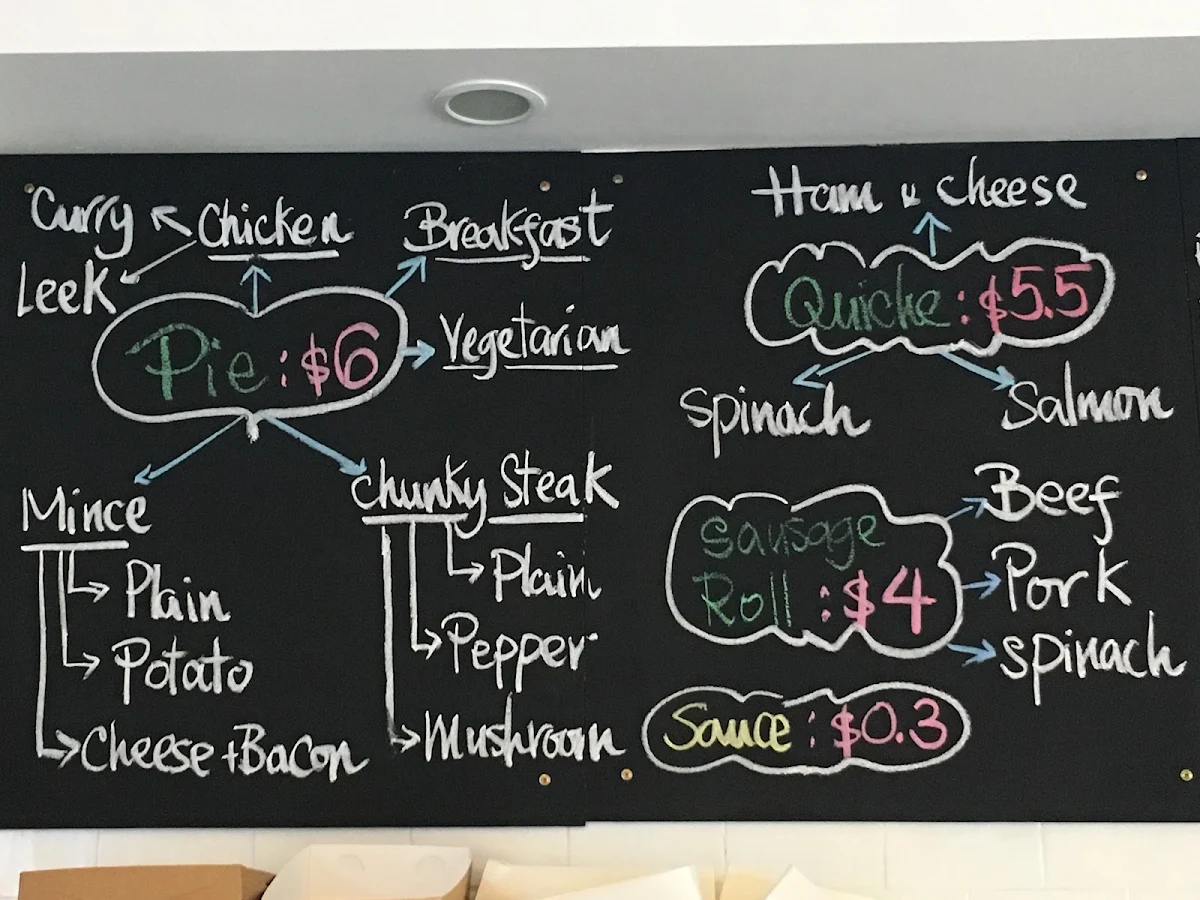 Curry
Chicken
Leek
Breakfast
Pie: $6
Vegetarian
Mince
Plain
Potato
Cheese+Bacon
Chunky Steak
Plain
Pepper
Mushroom
Ham n cheese
Quiche: $5.5
spinach
Salmon
Sausage
Roll: $4
Beef
Pork
spinach
Sauce: $0.3